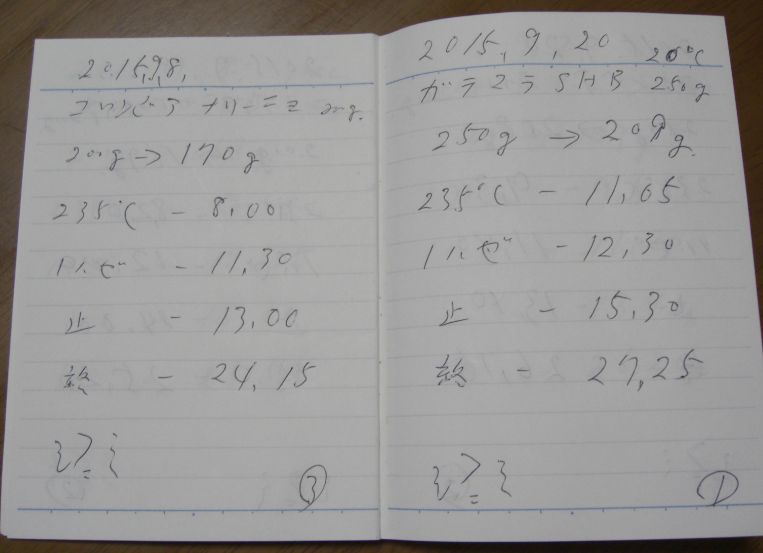 2015,9,8,
コロンビア ナリーニョ 200g.
200g → 170g
235℃ - 8,00
1ハゼ - 11,30
止 - 13,00
終 - 24,15
③
2015,9,20 20℃
ガテマラ SHB 250g
250g → 209g.
235℃ - 11,05
1ハゼ - 12,30
止 - 15,30
終 - 27,25
①